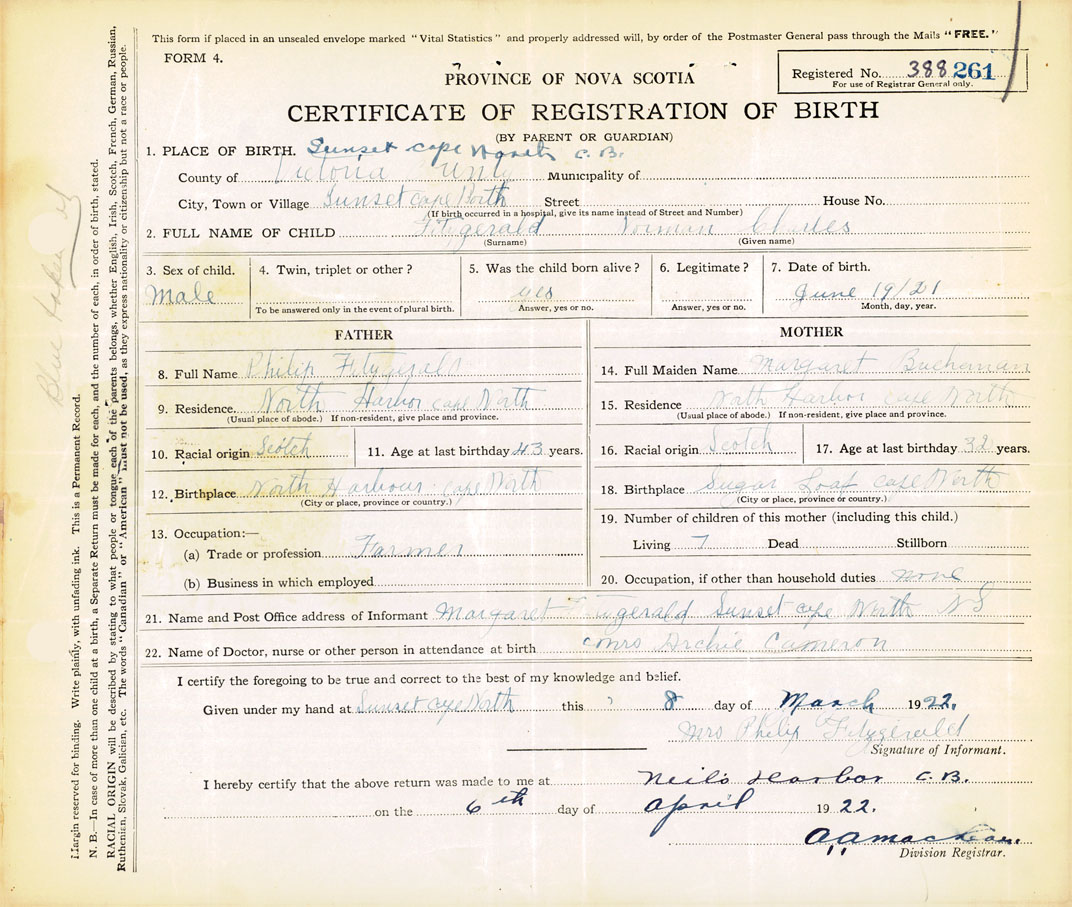 This form if placed in an unsealed envelope marked "Vital Statistics" and properly addressed will, by order of the Postmaster General pass through the Mails "FREE."
FORM 4.
Registered No. 388 261
For use of Registrar General only.
PROVINCE OF NOVA SCOTIA
CERTIFICATE OF REGISTRATION OF BIRTH
(BY PARENT OR GUARDIAN)
1. PLACE OF BIRTH. Sunset cape North C.B.
County of Victoria Municipality of
City, Town or Village Sunset cape North Street House No.
(If birth occurred in a hospital, give its name instead of Street and Number)
2. FULL NAME OF CHILD Fitzgerald Norman Charles
(Surname) (Given name)
3. Sex of child. 4. Twin, triplet or other? 5. Was the child born alive? 6. Legitimate? 7. Date of birth.
Male yes June 19/21
To be answered only in the event of plural birth. Answer, yes or no. Answer, yes or no. Month, day, year.
FATHER
8. Full Name Philip Fitzgerald
9. Residence. North Harbor cape North
(Usual place of abode.) If non-resident, give place and province.
10. Racial origin Scotch 11. Age at last birthday 43 years.
12. Birthplace North Harbour cape North
(City or place, province or country.)
13. Occupation:—
(a) Trade or profession Farmer
(b) Business in which employed
MOTHER
14. Full Maiden Name Margaret Buchanan
15. Residence North Harbor cape North
(Usual place of abode.) If non-resident, give place and province.
16. Racial origin Scotch 17. Age at last birthday 32 years.
18. Birthplace Sugar Loaf cape North
(City or place, province or country.)
19. Number of children of this mother (including this child.)
Living 7 Dead Stillborn
20. Occupation, if other than household duties none
21. Name and Post Office address of Informant Margaret Fitzgerald Sunset cape North N S
22. Name of Doctor, nurse or other person in attendance at birth Mrs Archie Cameron
I certify the foregoing to be true and correct to the best of my knowledge and belief.
Given under my hand at Sunset cape North this 8 day of March 1922.
Mrs Philip Fitzgerald
Signature of Informant.
I hereby certify that the above return was made to me at Neils Harbor C.B.
on the 6th day of April 1922.
Division Registrar.
Margin reserved for binding. Write plainly, with unfading ink. This is a Permanent Record.
N. B.—In case of more than one child at a birth, a Separate Return must be made for each, and the number of each, in order of birth, stated.
RACIAL ORIGIN will be described by stating to what people or tongue each of the parents belongs, whether English, Irish, Scotch, French, German, Russian,
Ruthenian, Slovak, Galician, etc. The words "Canadian" or "American" must not be used, as they express nationality or citizenship but not a race or people.